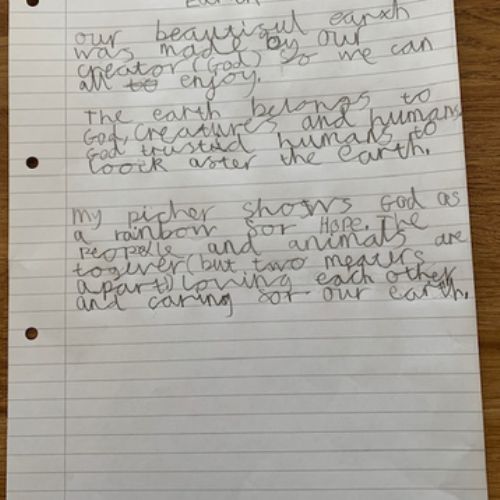 Our beautiful earth
was made by our
creator (God) so we can
all to enjoy.
The earth belongs to
God, Creatures and humans
God trusted humans to
look after the earth.
My picher shows God as
a rainbow for Hope. The
people and animals are
togever (but two meters
apart) loving each other
and caring for our earth.